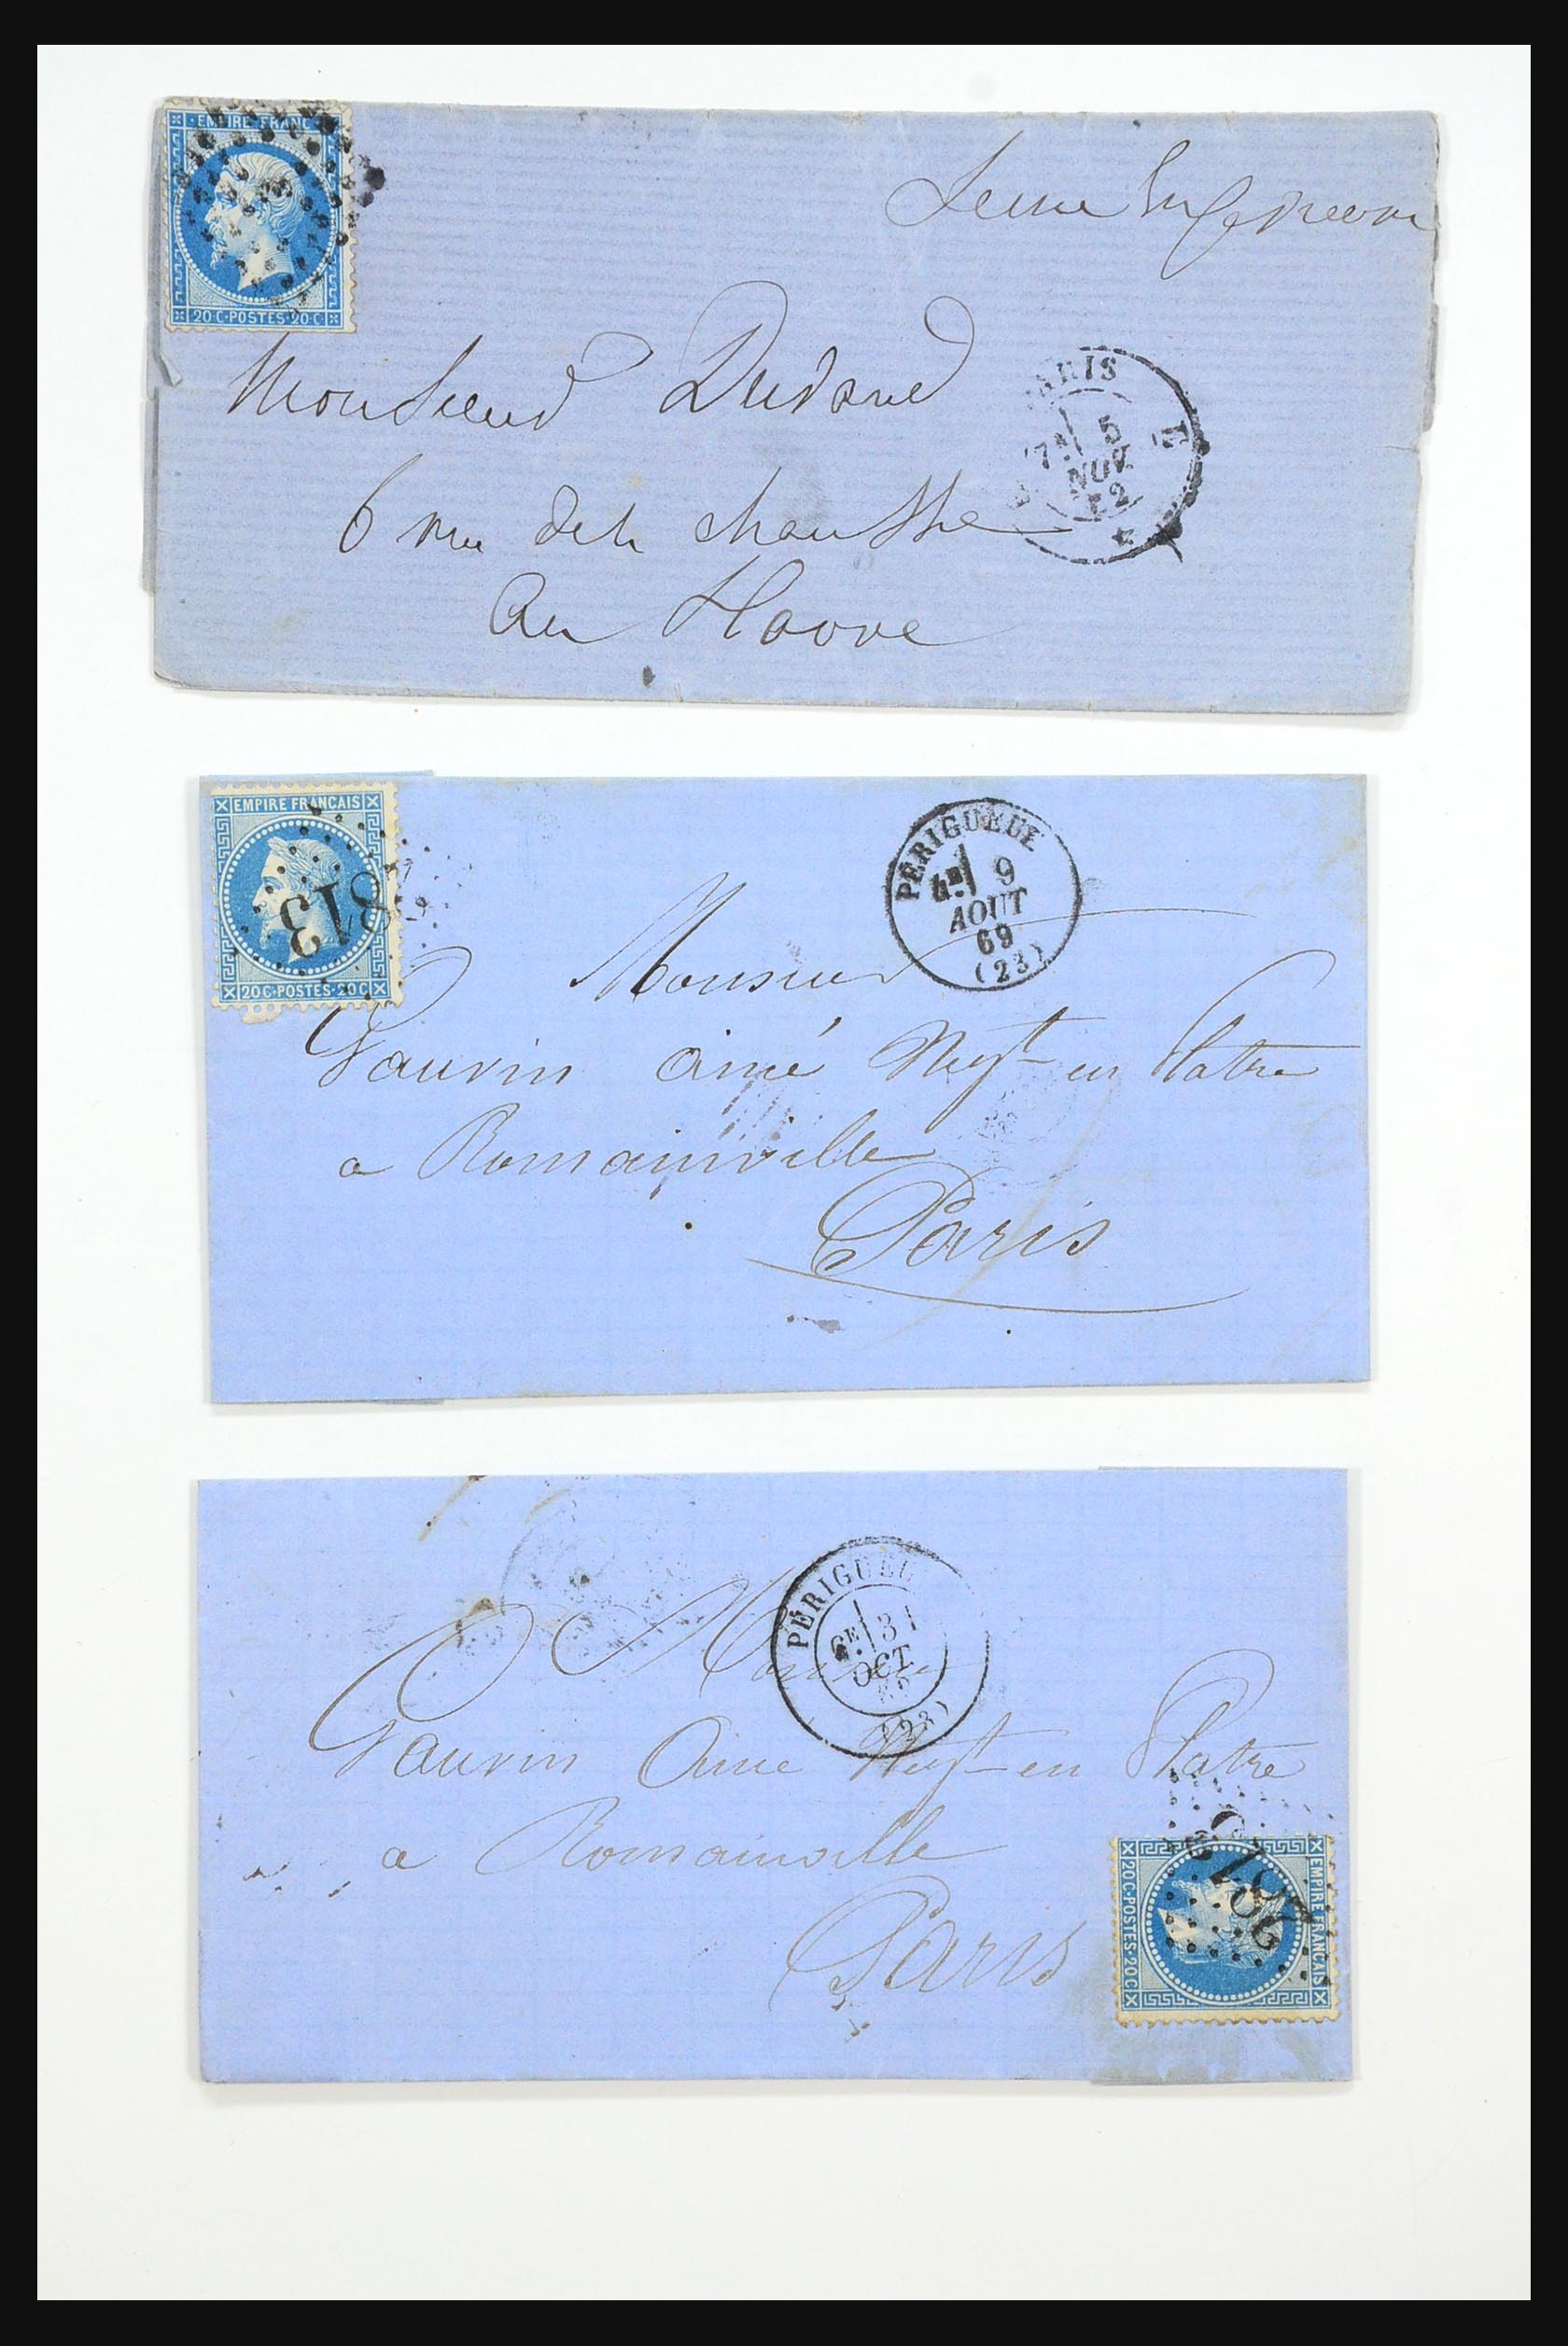 EMPIRE FRANC
20 C·POSTES·20·C
Monsieur Durand
PARIS
7E 5
NOV
62
E
6 rue de la chaussée
au Havre
EMPIRE FRANÇAIS
20 C·POSTES·20 C
2813
PÉRIGUEUX
4E 9
AOUT
69
(23)
Monsieur
Vauvin ainé Negt en Platre
a Romainville
Paris
PÉRIGUEU
6E 31
OCT
(23)
Monsieur
Vauvin Ainé Negt en Platre
a Romainville
Paris
EMPIRE FRANÇAIS
20 C·POSTES·20 C
2813